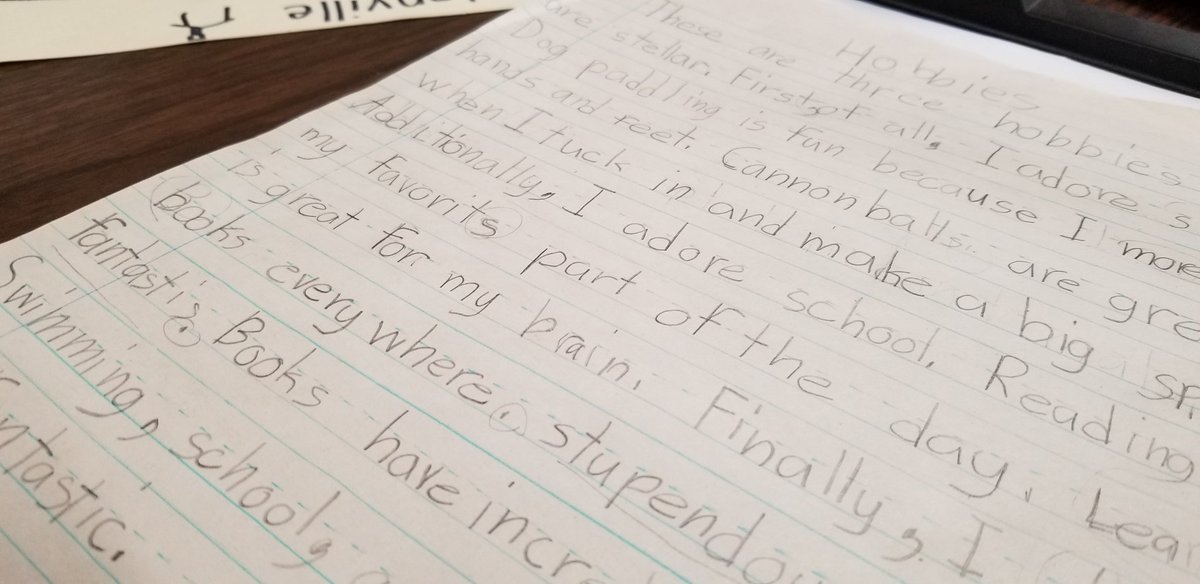 Hobbies
These are three hobbies
are stellar. First of all, I adore s
Dog paddling is fun because I move
hands and feet. Cannonballs are gre
when I tuck in and make a big sp
Additionally, I adore school. Reading
my favorits part of the day. Lea
is great for my brain. Finally, I
Books everywhere. stupendou
fantastic. Books have incre
Swimming, school,
ntastic.